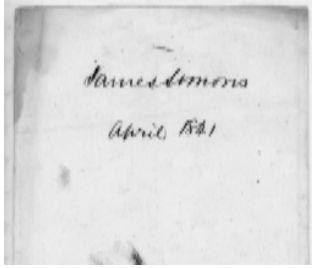 James Simons
April 1861